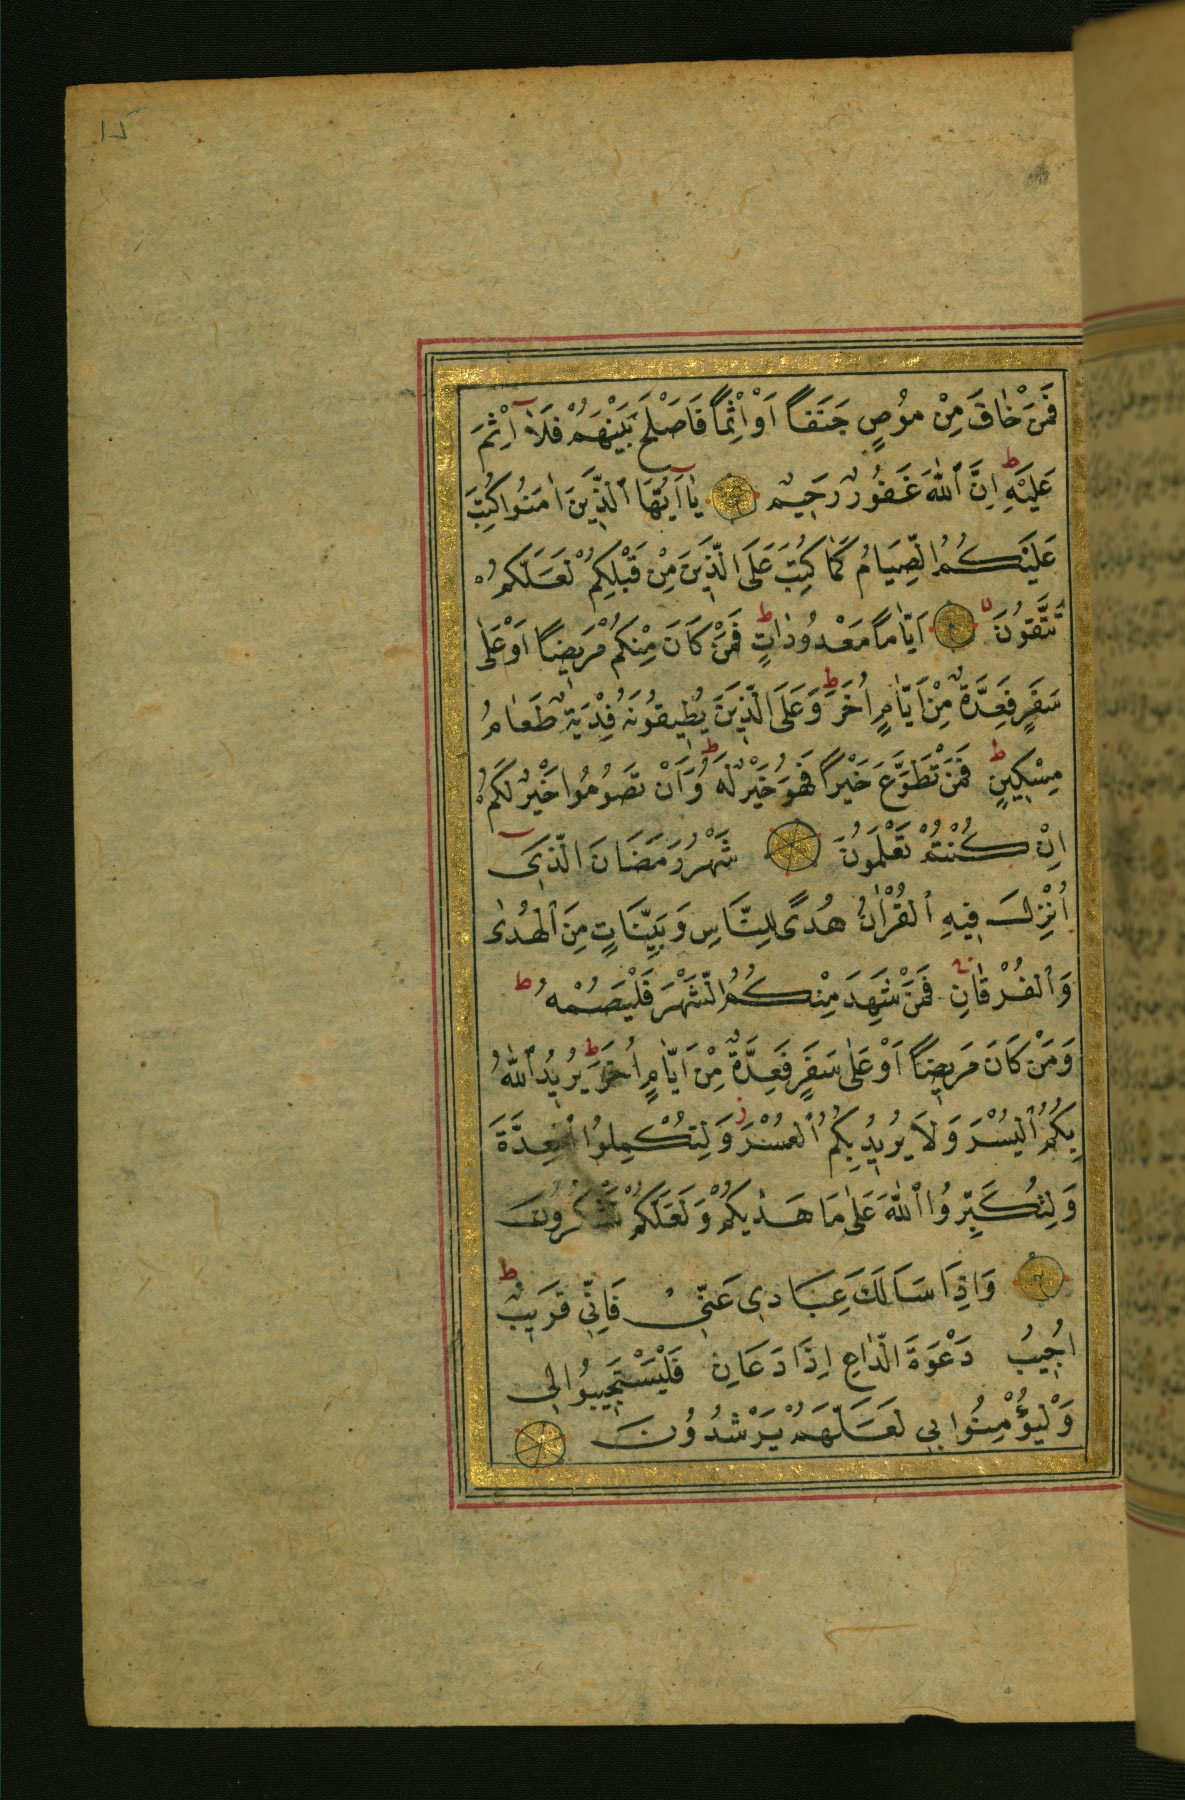 ١٥
فَمَنْ خَافَ مِنْ مُوصٍ جَنَفًا اَوْ اِثْمًا فَاَصْلَحَ بَيْنَهُمْ فَلَٓا اِثْمَ
عَلَيْهِ ط اِنَّ اللّٰهَ غَفُورٌ رَحِيمٌ يَٓا اَيُّهَا الَّذِينَ اٰمَنُوا كُتِبَ
عَلَيْكُمُ الصِّيَامُ كَمَا كُتِبَ عَلَى الَّذِينَ مِنْ قَبْلِكُمْ لَعَلَّكُمْ
تَتَّقُونَ اَيَّامًا مَعْدُودَاتٍ ط فَمَنْ كَانَ مِنْكُمْ مَرِيضًا اَوْ عَلٰى
سَفَرٍ فَعِدَّةٌ مِنْ اَيَّامٍ اُخَرَ ط وَعَلَى الَّذِينَ يُطِيقُونَهُ فِدْيَةٌ طَعَامُ
مِسْكِينٍ ط فَمَنْ تَطَوَّعَ خَيْرًا فَهُوَ خَيْرٌ لَهُ ط وَاَنْ تَصُومُوا خَيْرٌ لَكُمْ
اِنْ كُنْتُمْ تَعْلَمُونَ شَهْرُ رَمَضَانَ الَّذِٓى
اُنْزِلَ فِيهِ الْقُرْاٰنُ هُدًى لِلنَّاسِ وَبَيِّنَاتٍ مِنَ الْهُدٰى
وَالْفُرْقَانِ فَمَنْ شَهِدَ مِنْكُمُ الشَّهْرَ فَلْيَصُمْهُ ط
وَمَنْ كَانَ مَرِيضًا اَوْ عَلٰى سَفَرٍ فَعِدَّةٌ مِنْ اَيَّامٍ اُخَرَ ط يُرِيدُ اللّٰهُ
بِكُمُ الْيُسْرَ وَلَا يُرِيدُ بِكُمُ الْعُسْرَ ز وَلِتُكْمِلُوا الْعِدَّةَ
وَلِتُكَبِّرُوا اللّٰهَ عَلٰى مَا هَدٰيكُمْ وَلَعَلَّكُمْ تَشْكُرُونَ
وَاِذَا سَاَلَكَ عِبَادِى عَنِّى فَاِنِّى قَرِيبٌ ط
اُجِيبُ دَعْوَةَ الدَّاعِ اِذَا دَعَانِ فَلْيَسْتَجِيبُوا لِى
وَلْيُؤْمِنُوا بِى لَعَلَّهُمْ يَرْشُدُونَ